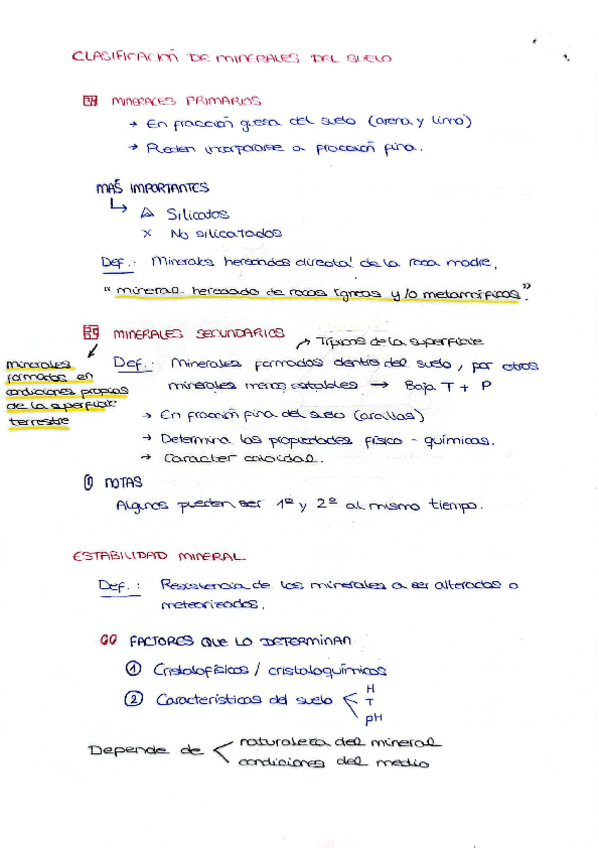 CLASIFICACIÓN DE MINERALES DEL SUELO
MINERALES PRIMARIOS
→ En fracción gruesa del suelo (arena y limo)
→ Pueden incorporarse a fracción fina.
MAS IMPORTANTES
Silicatos
No silicatados
Def.: Minerales heredados directa! de la roca madre,
"mineral heredado de rocas ígneas y/o metamórficas."
MINERALES SECUNDARIOS
→ Típicos de la superficie
Def.: Minerales formados dentro del suelo, por otros
minerales menos estables → Baja T + P
minerales
formados en
condiciones propias
de la superficie
terrestre
→ En fracción fina del suelo (arcillas)
→ Determina las propiedades físico-químicas.
→ Caracter coloidal.
NOTAS
Algunos pueden ser 1º y 2º al mismo tiempo.
ESTABILIDAD MINERAL
Def.: Resistencia de los minerales a ser alterados o
meteorizados.
FACTORES QUE LO DETERMINAN
① Cristalofísicos / cristaloquímicos
② Características del suelo < H
T
pH
Depende de < naturaleza del mineral
condiciones del medio